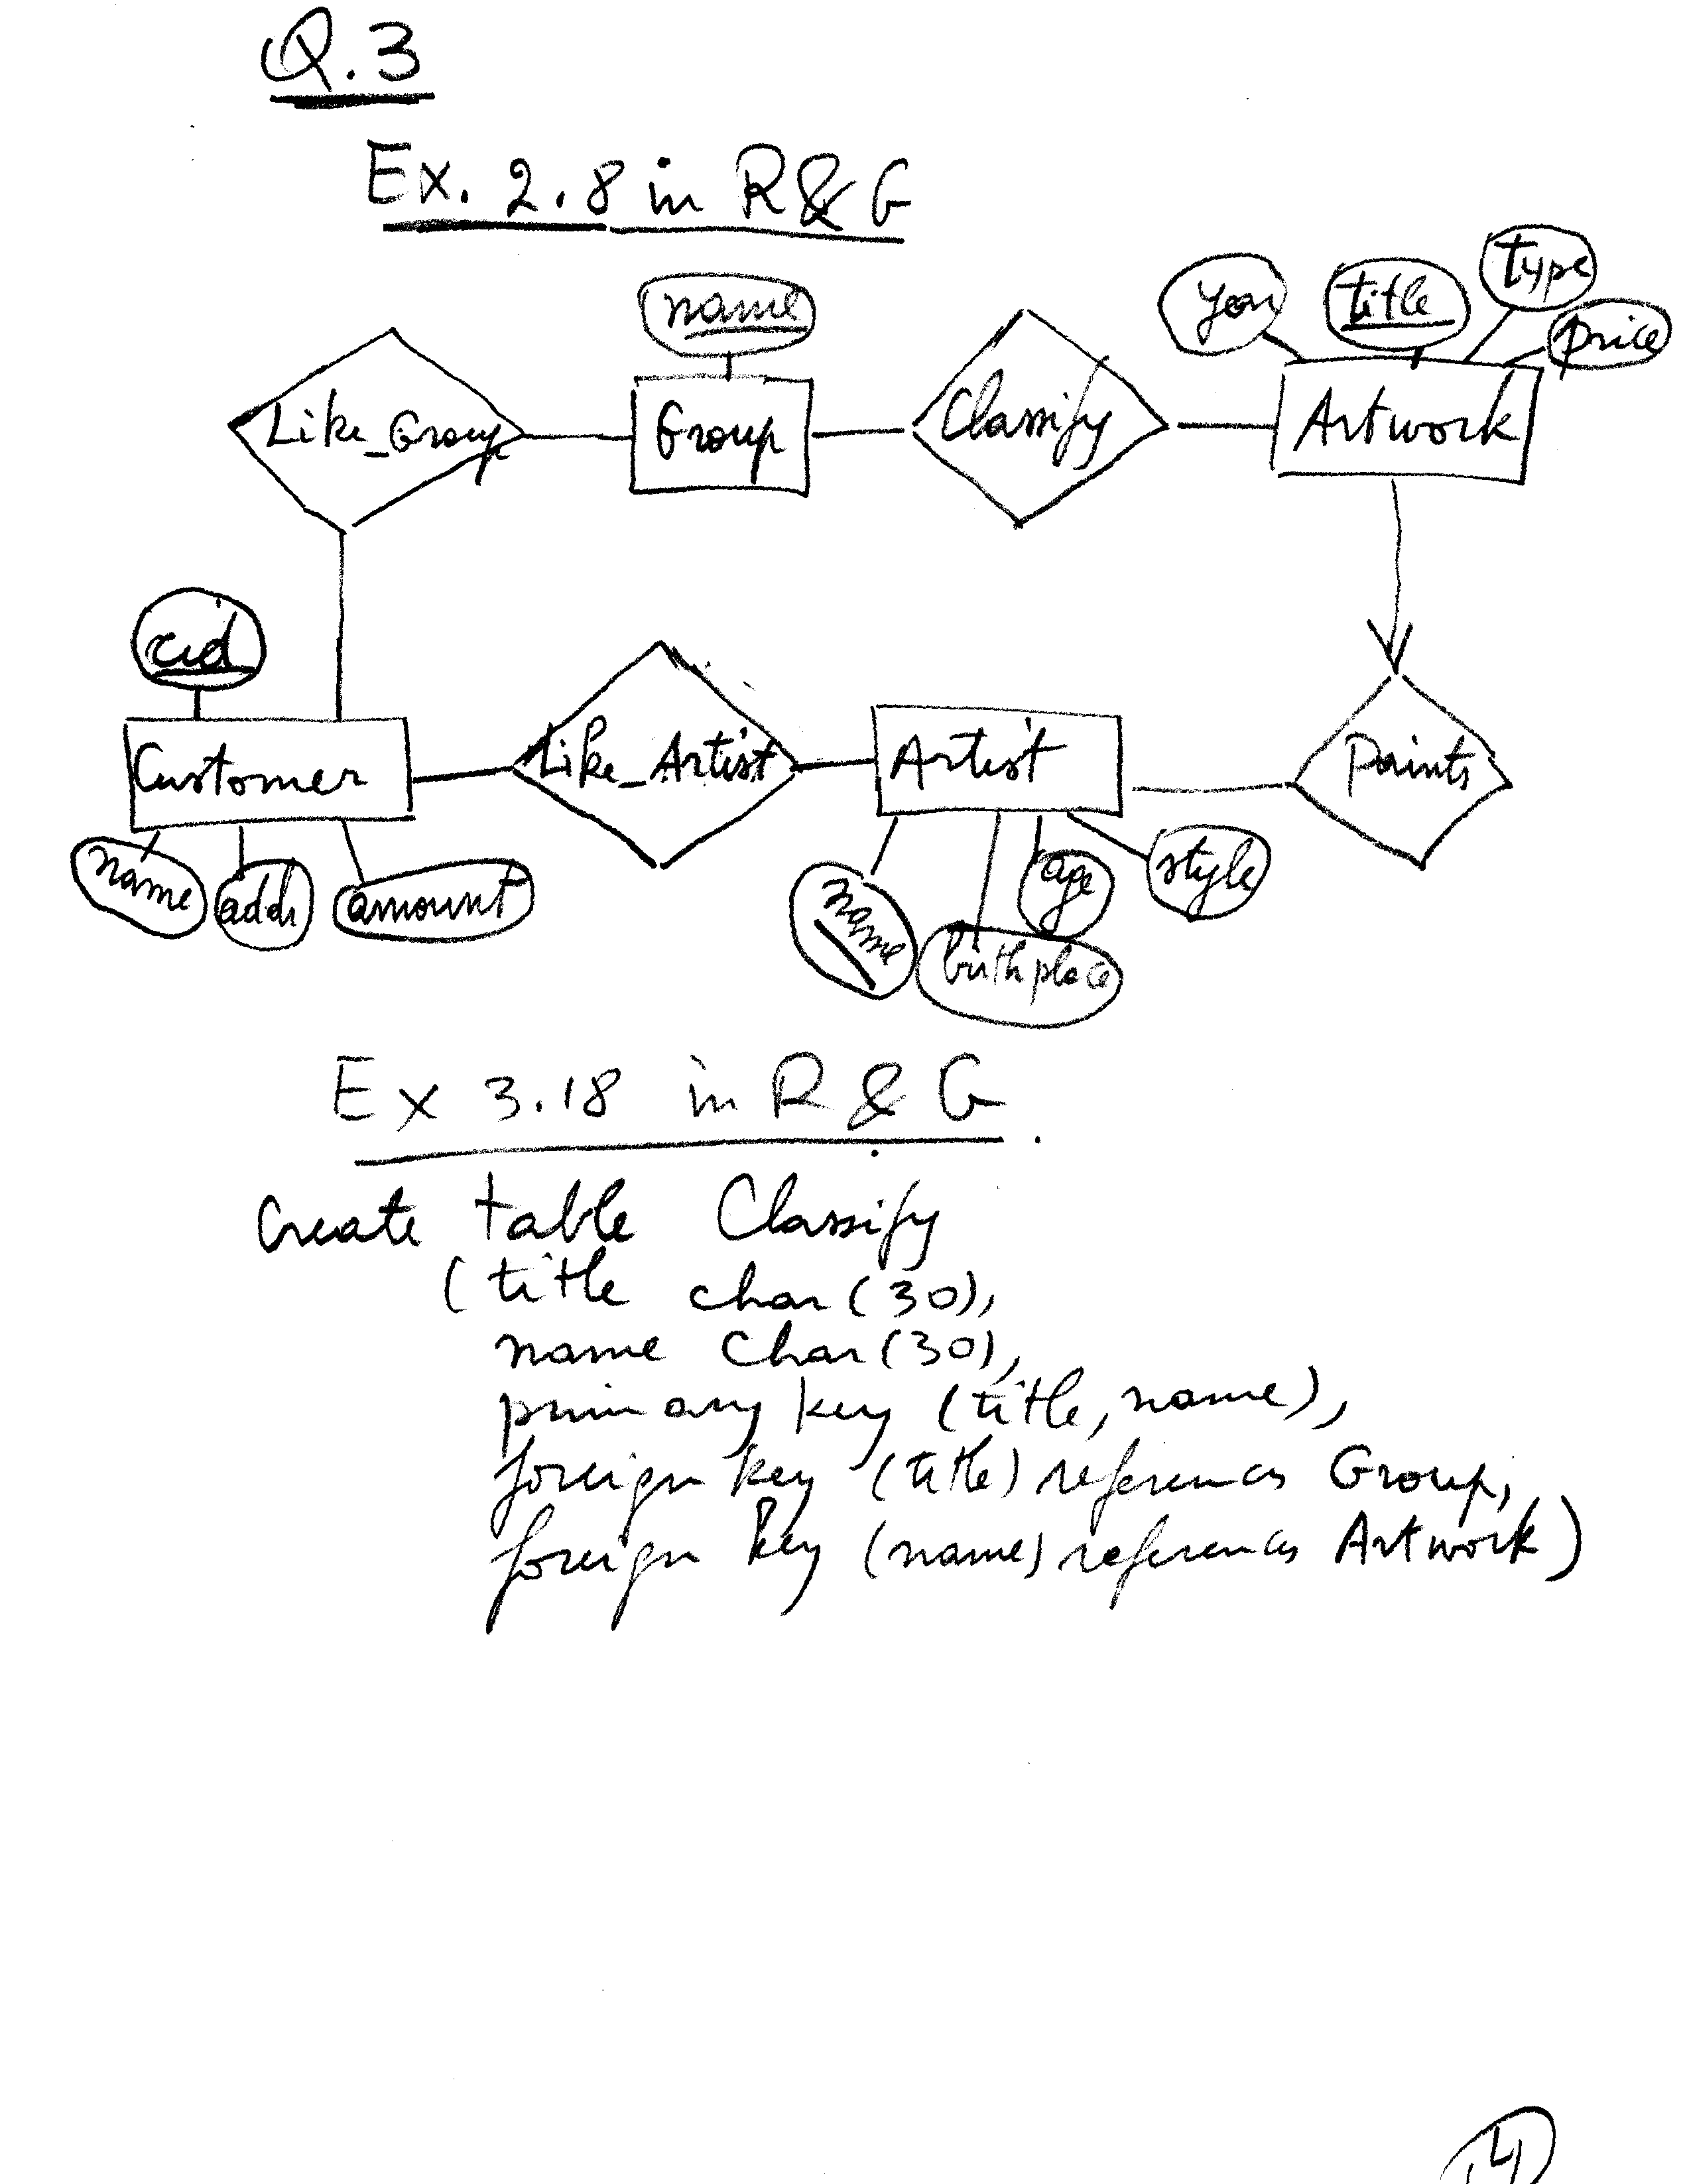 Q.3
Ex. 2.8 in R&G
name
year
title
type
price
Like_Group
Group
Classify
Artwork
cid
Customer
Like_Artist
Artist
Paints
name
addr
amount
name
birthplace
age
style
Ex 3.18 in R & G
Create table Classify
(title char(30),
name char(30),
primary key (title, name),
foreign key (title) references Group,
foreign key (name) references Artwork)